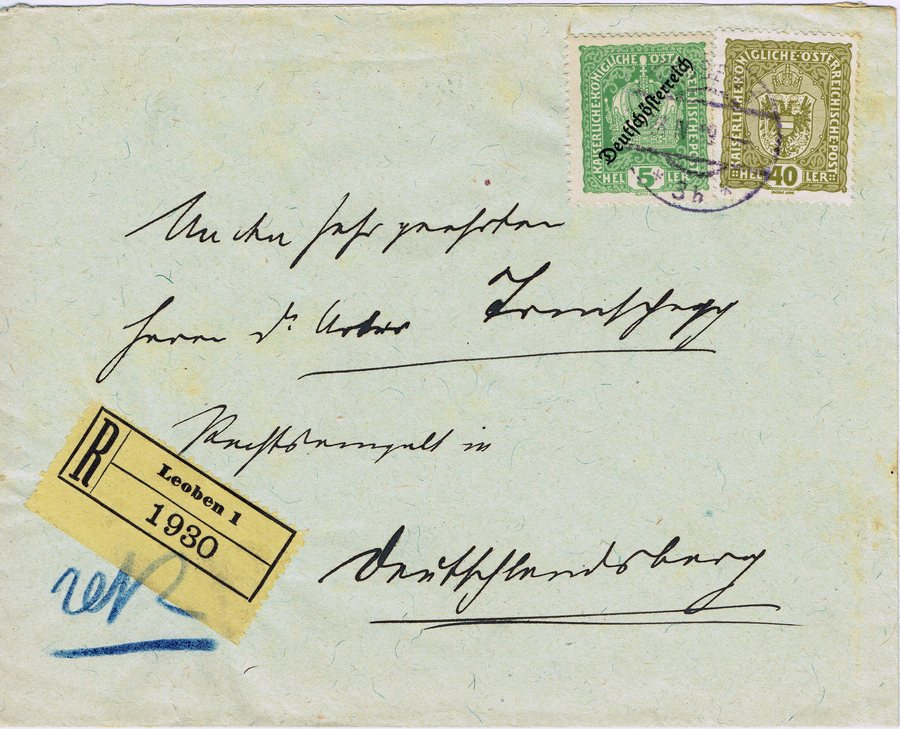 KAISERLICHE·KÖNIGLICHE·ÖSTERREICHISCHE·POST
Deutschösterreich
HEL 5 LER
KAISERLICHE KÖNIGLICHE ÖSTERREICHISCHE POST
HEL 40 LER
* 3b *
An den sehr geehrten
Herrn Dr.
Rechtsanwalt in
Deutschlandsberg
R
Leoben 1
1930